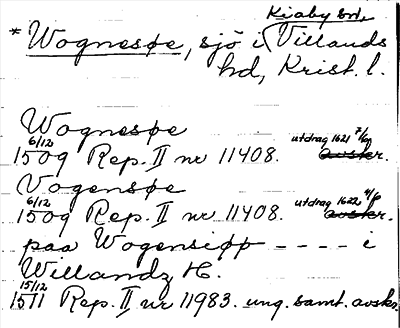 Kiaby sn,
*Wognesøe, sjö i Villands
hd, Krist. l.
Wognesøe
6/12 1509 Rep. II nr 11408. utdrag 1621 7/6 avskr.
Vogensøe
6/12 1509 Rep. II nr 11408. utdrag 1622 4/6 avskr.
paa Wogensiøø - - - - i
Willandz H.
15/12 1511 Rep. II nr 11983. ung. samt. avskr.